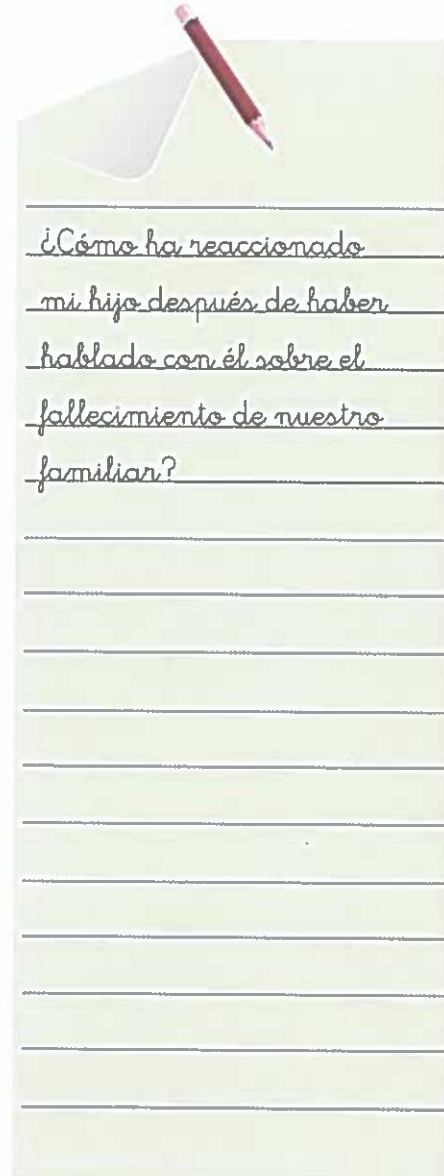 ¿Cómo ha reaccionado
mi hijo después de haber
hablado con él sobre el
fallecimiento de nuestro
familiar?